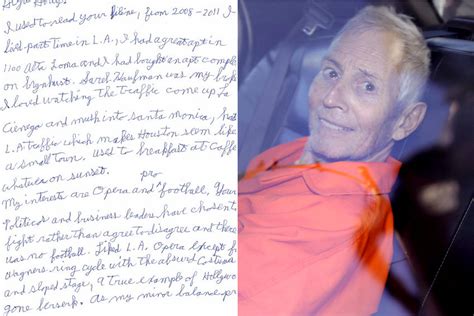 I used to read your Online, from 2008-2011 I
lived part time in L.A., I had a great apt in
1100 Alta Loma and I had bought an apt complex
on Lynhust. Sareh Kaufman was my broker
I loved watching the traffic come up La
Cienega and mush into Santa Monica, but
L.A. traffic which makes Houston seem like
a small town. Used to breakfast at Caffe
on sunset.
pro
My interests are Opera and football, Your
Political and business leaders have chosen to
fight rather than agree to disagree and there
was no football. Liked L.A. Opera except for
Wagners ring cycle with the absurd Costumes
and sloped stage, a true example of Hollywood
gone berserk. As my minor balance